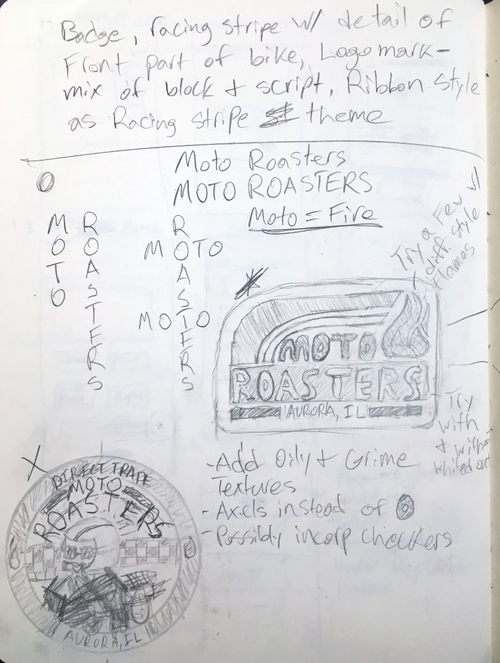 Badge, racing stripe w/ detail of
Front part of bike, Logo mark-
mix of block + script, Ribbon style
as Racing Stripe theme
Moto Roasters
MOTO ROASTERS
Moto = Fire
Try a Few w/
diff. style
flames
MOTO
ROASTERS
ROASTERS
MOTO
MOTO
MOTO
ROASTERS
AURORA, IL
Try
with
+ without
whited out
X
DIRECT TRADE
MOTO
ROASTERS
AURORA, IL
-Add Oily + Grime
Textures
-Axels instead of
-Possibly incorp checkers